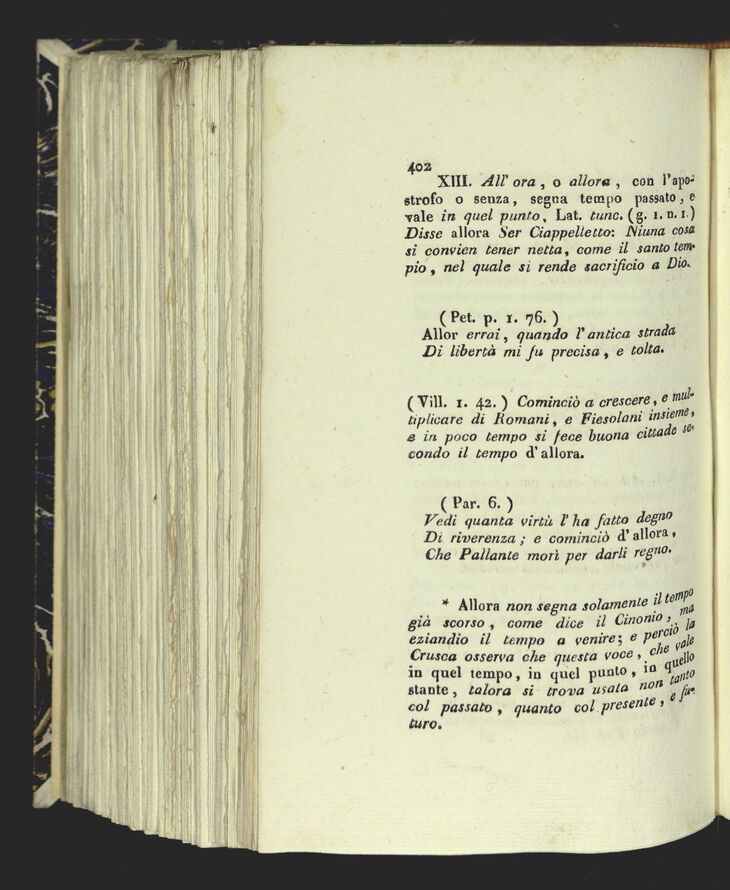 402
XIII. All' ora, o allora, con l'apo-
strofo o senza, segna tempo passato, e
vale in quel punto, Lat. tunc. (g. 1. n. 1.)
Disse allora Ser Ciappelletto: Niuna cosa
si convien tener netta, come il santo tem-
pio, nel quale si rende sacrificio a Dio.
(Pet. p. 1. 76.)
Allor errai, quando l'antica strada
Di libertà mi fu precisa, e tolta.
(Vill. 1. 42.) Cominciò a crescere, e mul-
tiplicare di Romani, e Fiesolani insieme,
e in poco tempo si fece buona cittade se-
condo il tempo d'allora.
(Par. 6.)
Vedi quanta virtù l'ha fatto degno
Di riverenza; e cominciò d'allora,
Che Pallante morì per darli regno.
* Allora non segna solamente il tempo
già scorso, come dice il Cinonio, ma
eziandio il tempo a venire; e perciò la
Crusca osserva che questa voce, che vale
in quel tempo, in quel punto, in quello
stante, talora si trova usata non tanto
col passato, quanto col presente, e fu-
turo.